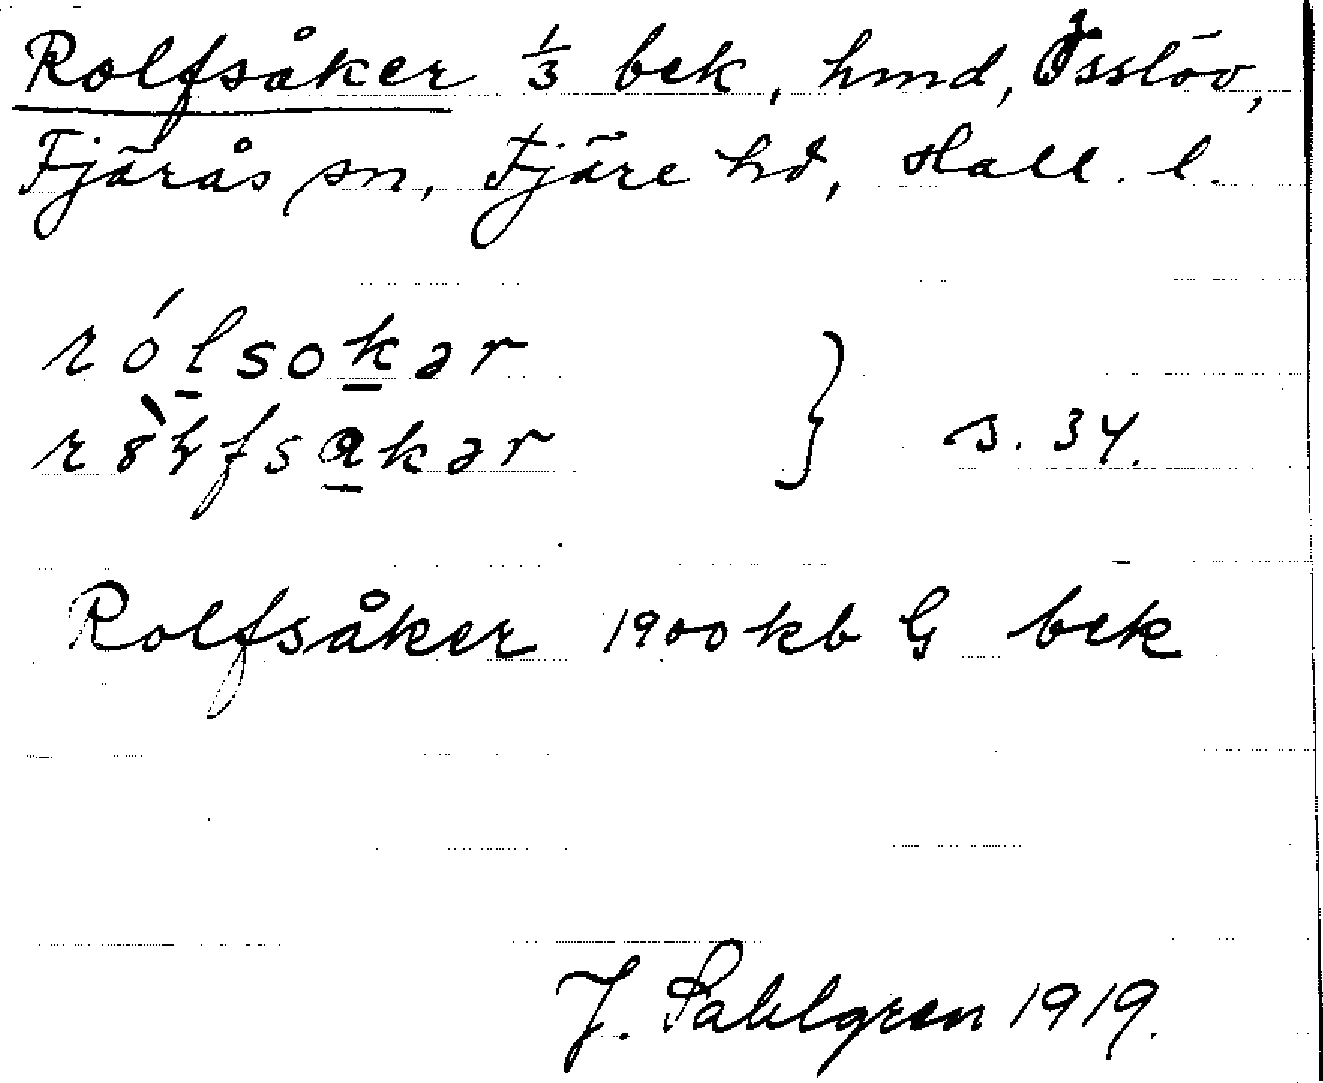 Rolfsåker 1/3 bek, hmd, Össlöv,
Fjärås sn, Fjäre hd, Hall. l.
rólsokər
s. 34.
Rolfsåker 1900 kb G bek
J. Sahlgren 1919.